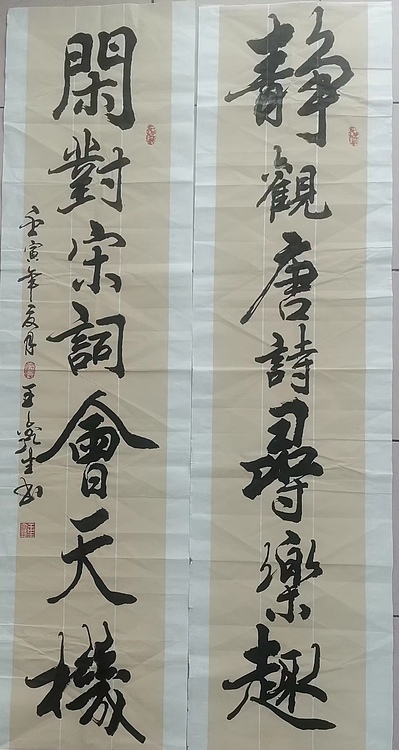 静觀唐詩尋樂趣
閑對宋詞會天機
壬寅年夏月
王義生书